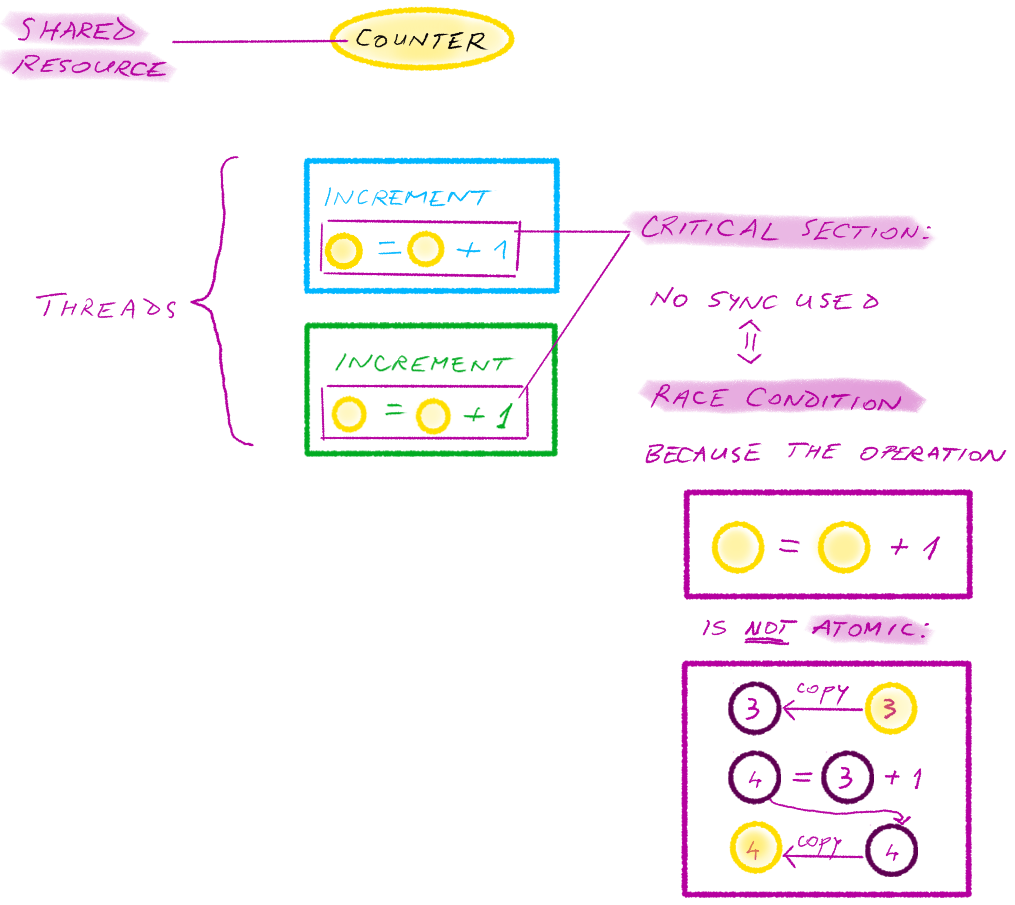 SHARED
RESOURCE
COUNTER
THREADS
INCREMENT
= + 1
INCREMENT
= + 1
CRITICAL SECTION:
NO SYNC USED
RACE CONDITION
BECAUSE THE OPERATION
= + 1
IS NOT ATOMIC:
3 COPY 3
4 = 3 + 1
4 COPY 4